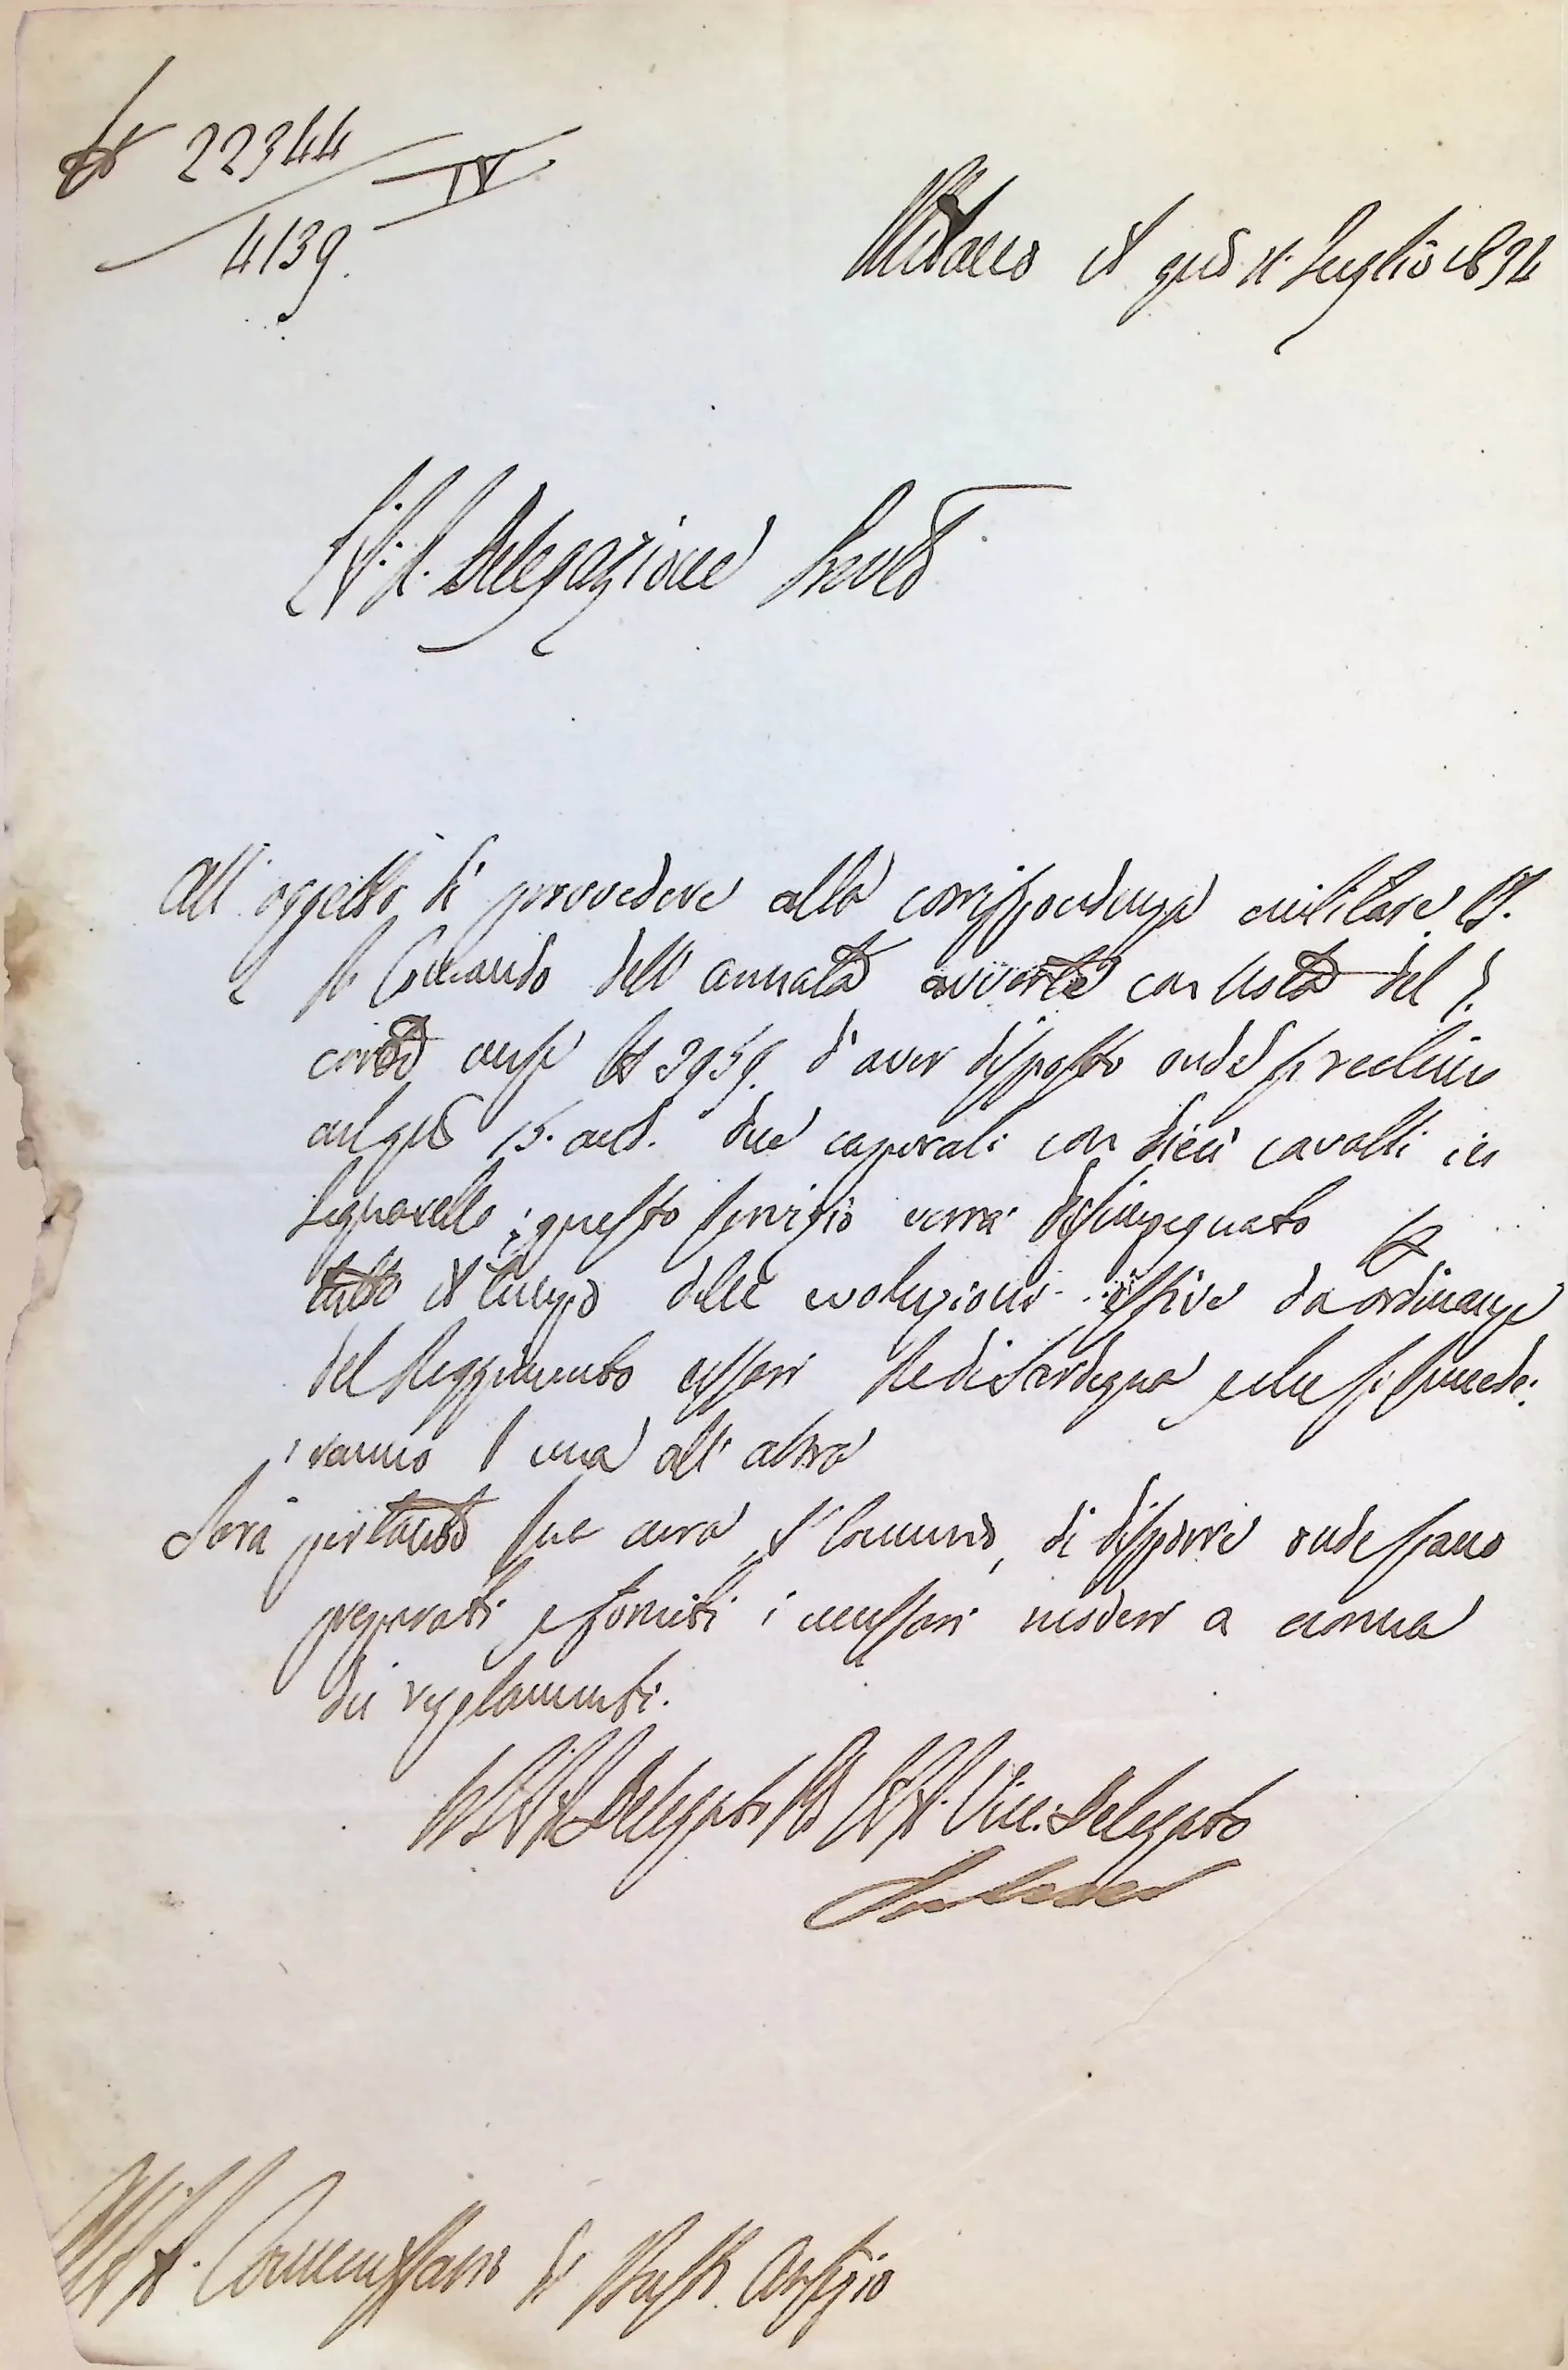 N 22344 IV
4139.
Milano il gno 11. Luglio 1834
L'I. R. Delegazione Prov.
All'oggetto di provvedere alla corrispondenza militare l'I.
R. Comando dell'armata avverte con Nota del 7.
corre N 2959. d'aver disposto onde si rechino
nel gno 15. and. due caporali con dieci cavalli in
Legnarello; questo servizio verrà disimpegnato
tutto il tempo delle evoluzioni estive da ordinanze
del Reggimento ussari Re di Sardegna che si succede:
ranno l'una all'altra
Sarà pertanto sua cura, di disporre onde siano
preparati e forniti i necessari a norma
dei regolamenti.
L'I. R. Delegato I. R. Vice: Delegato
All'I. R. Commissario di Busto Arsizio